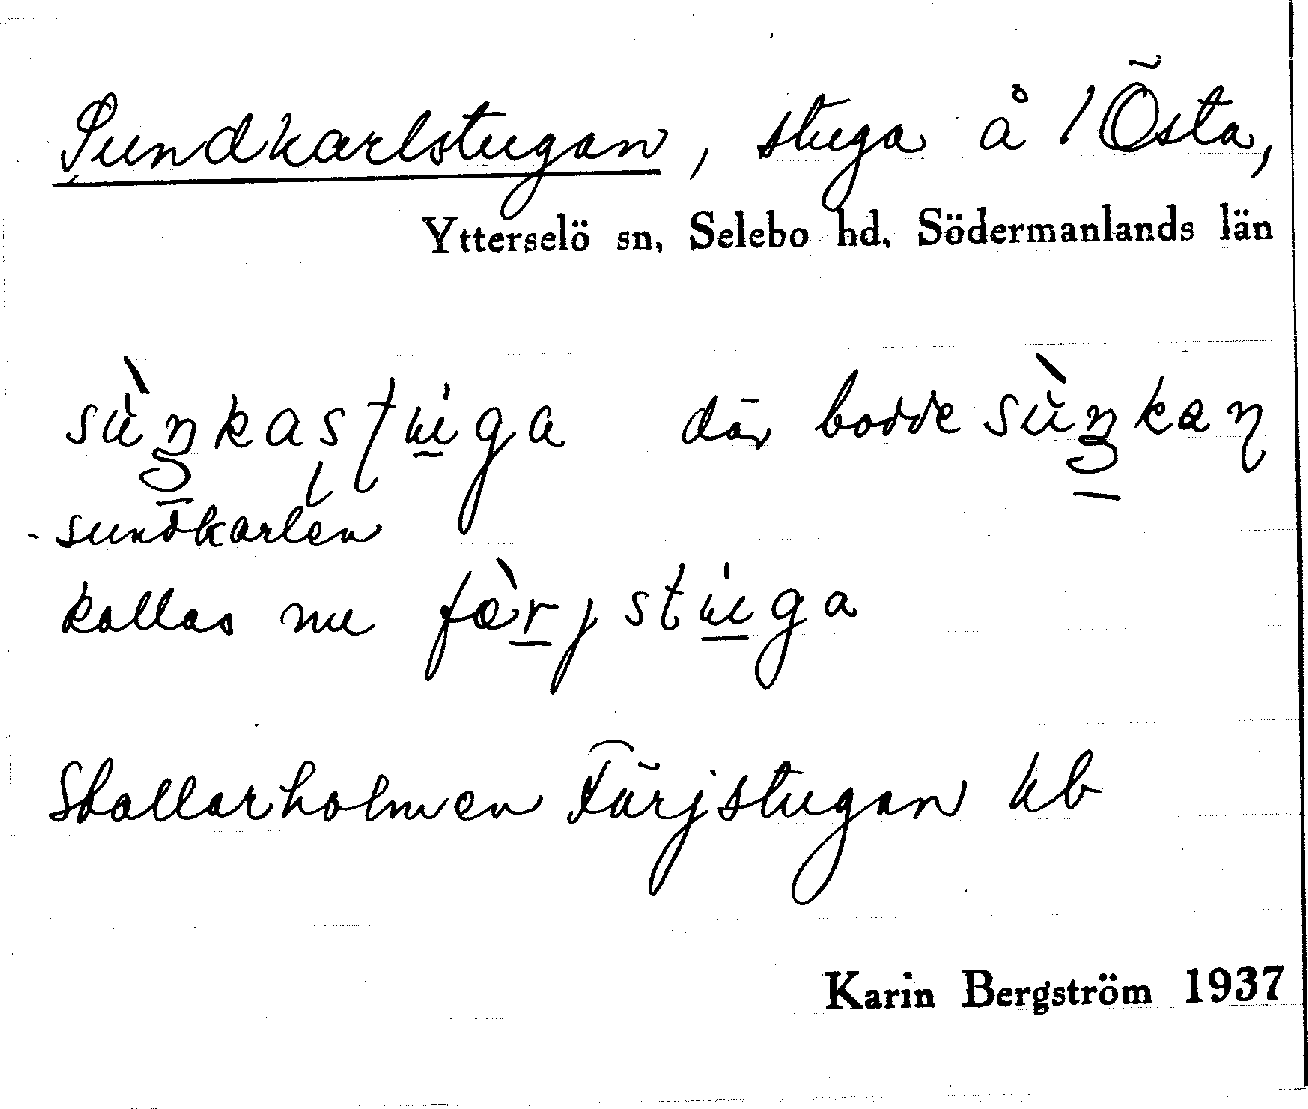 Sundkarlstugan, stuga å 1 Östa,
Ytterselö sn, Selebo hd. Södermanlands län
sùŋkastúga där bodde sùŋkaɳ
sundkarlen
kallas nu fæ̀rjstúga
Stallarholmen Färjstugan kb
Karin Bergström 1937